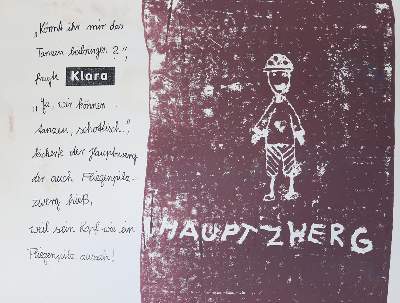 „Könnt ihr mir das
Tanzen beibringen?“,
fragte Klara
„Ja, wir können
tanzen, schottisch“,
der Hauptzwerg
der auch Fliegenpilz-
zwerg hieß,
weil sein Kopf wie ein
Fliegenpilz aussah!
HAUPTZWERG